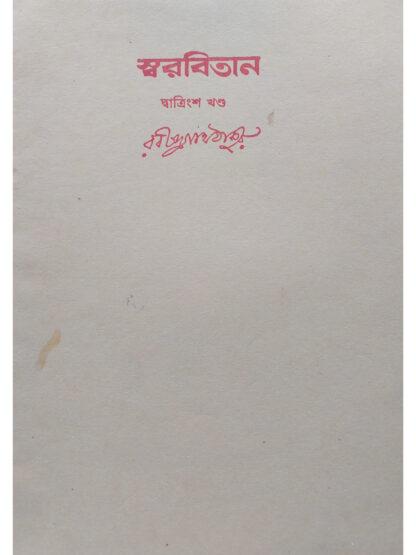 স্বরবিতান
দ্বাত্রিংশ খণ্ড
রবীন্দ্রনাথ ঠাকুর